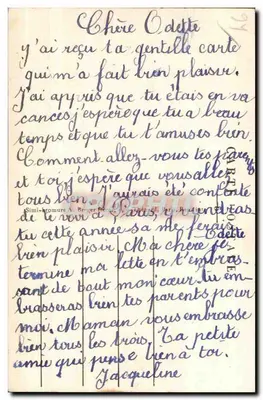 Chère Odette
y'ai reçu ta gentille carte
qui m'a fait bien plaisir.
J'ai appris que tu étais en va
cances j'espère que tu a beau
temps et que tu t'amuses bien.
Comment allez-vous tes parents
et toi j'espère que vous allez
tous bien J'aurais été contente
de te voir à Paris, y viendras
tu cette année sa me ferais
bien plaisir. Ma chère Odette je
termine ma lettre en t'embras-
sant de tout mon cœur. tu em-
brasseras bien tes parents pour
moi. Maman vous embrasse
bien tous les trois. Ta petite
amie qui pense bien à toi.
Jacqueline
CARTE POSTALE